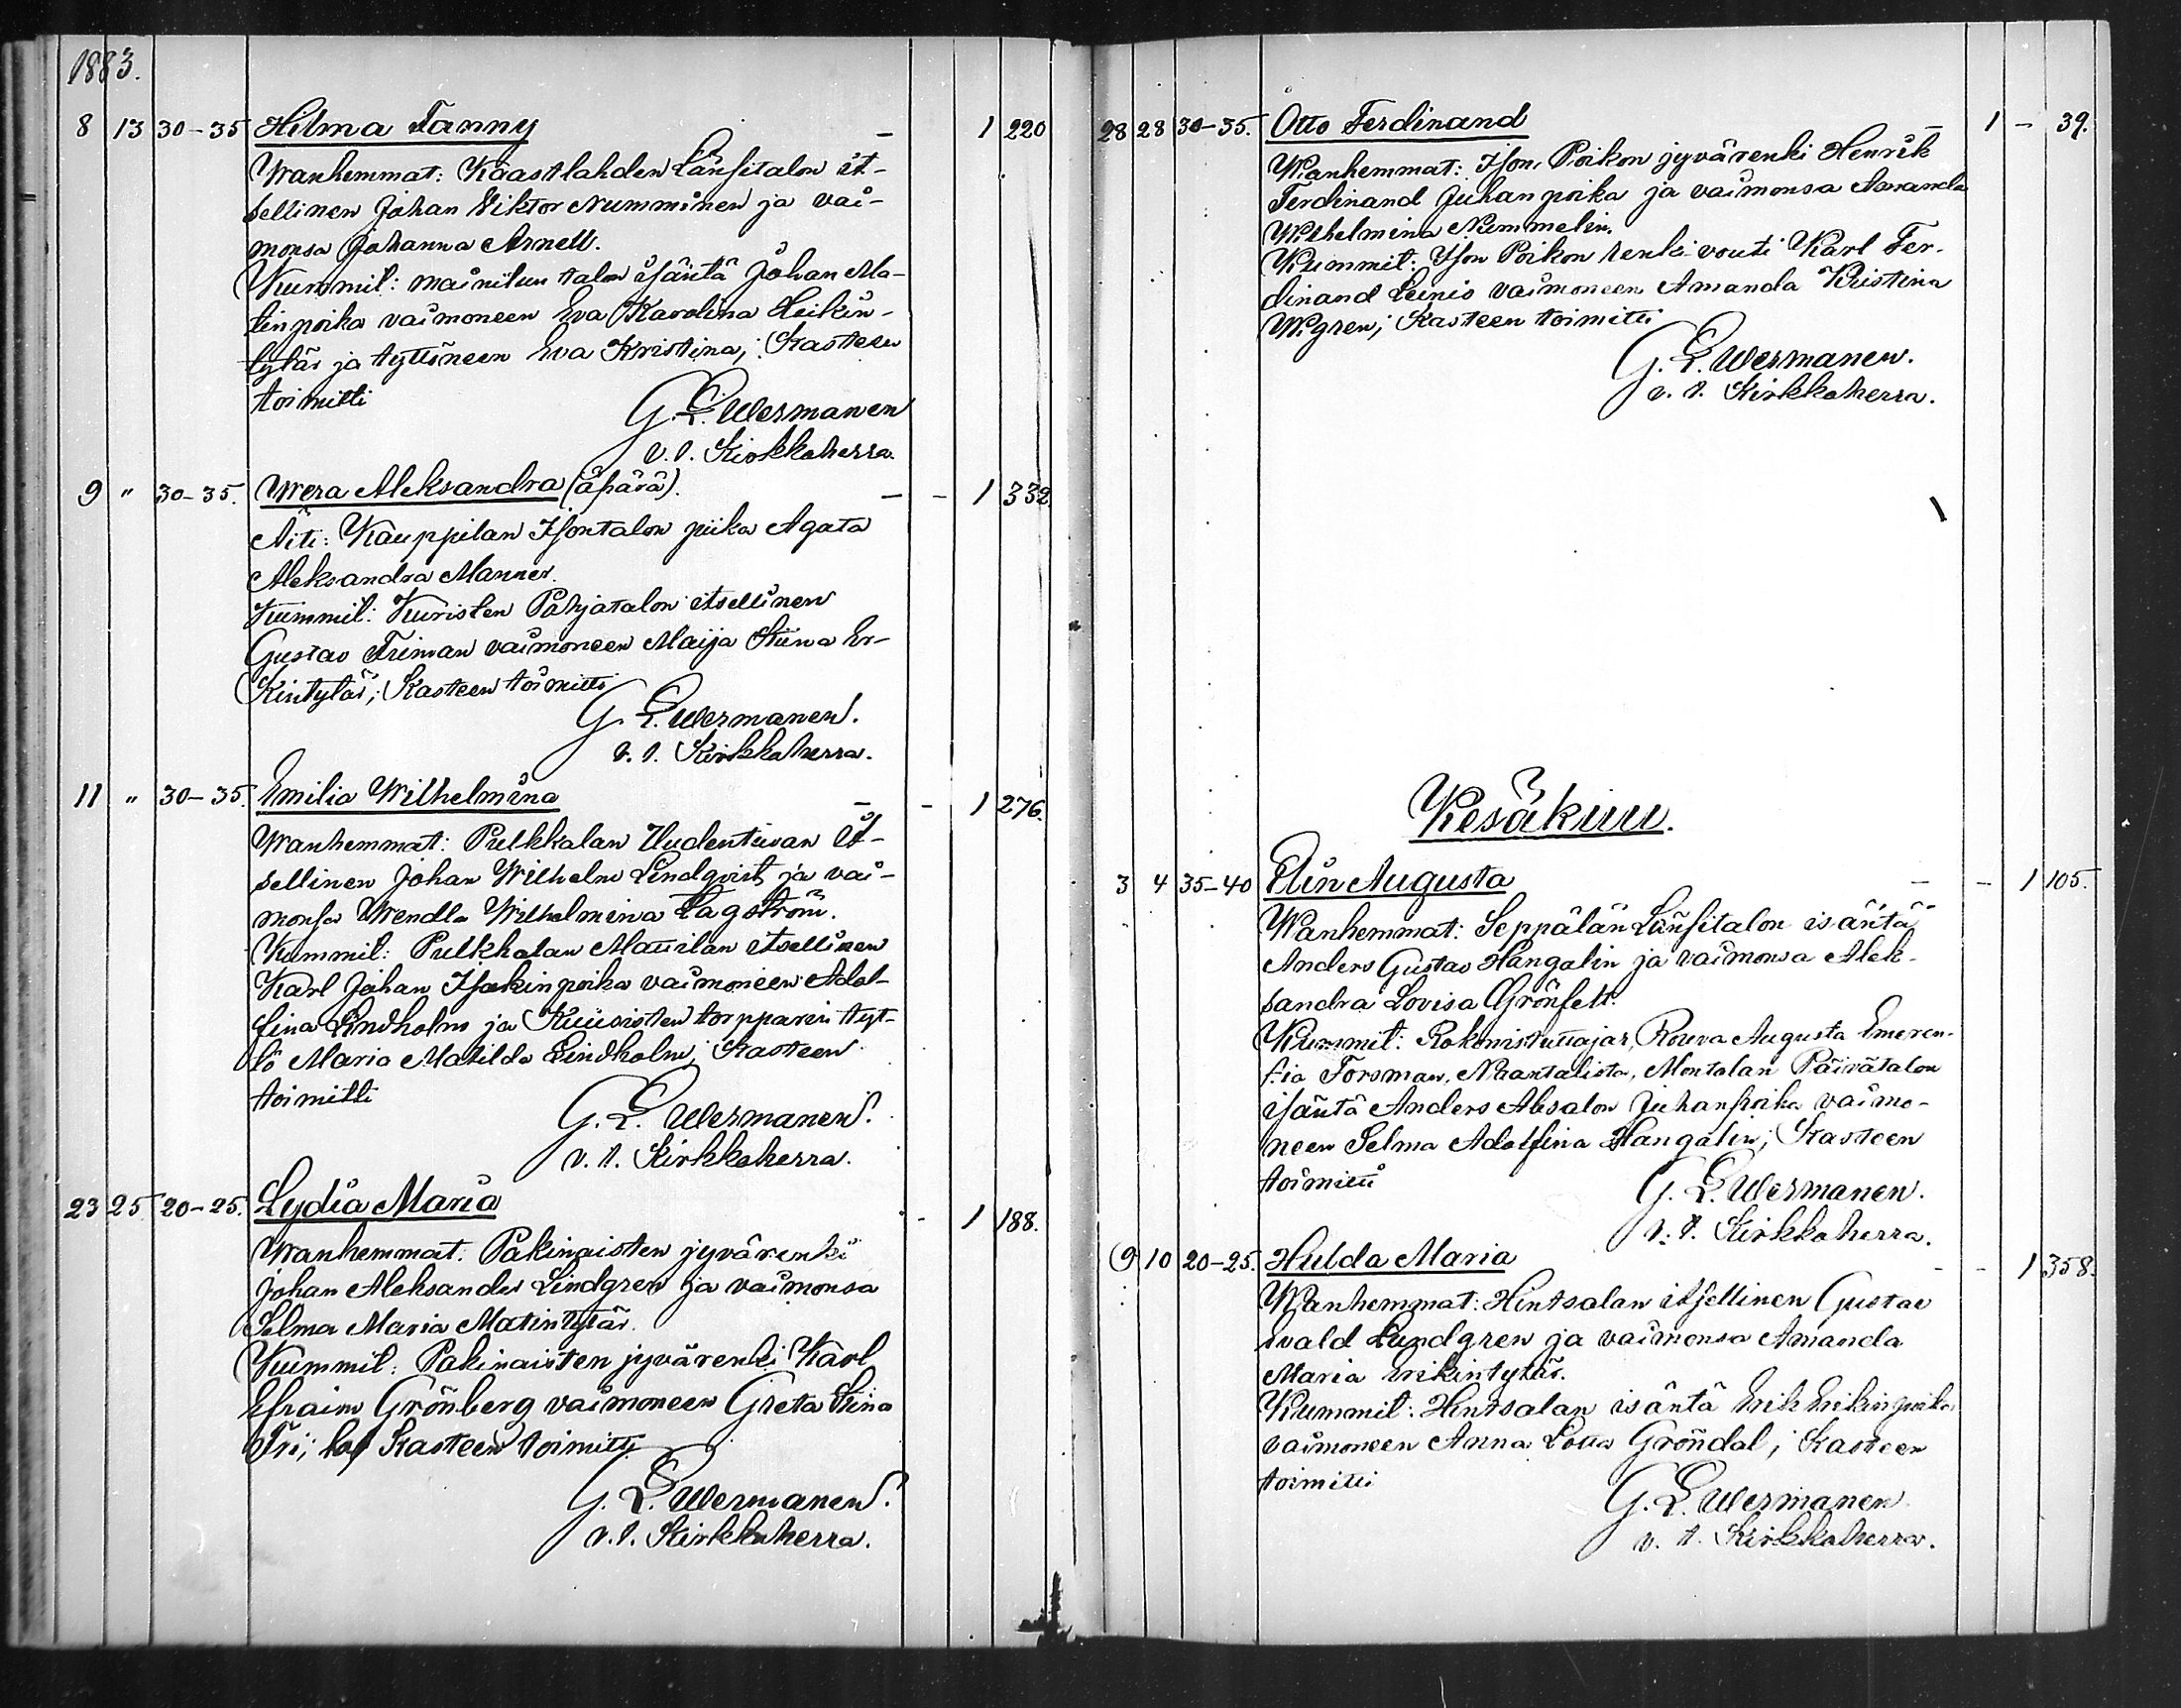 1883.
8 13 30-35 Hilma Fanny - 1 220
Wanhemmat: Kaastlahden Länsitalon it-
sellinen Johan Viktor Numminen ja vai-
monsa Johanna Arnell.
Kummit: mainitun talon isäntä Johan Ma-
tinpoika vaimoneen Eva Karolina Heikin-
tytär ja tyttöneen Eva Kristina; Kasteen
toimitti
G. L. Wermanen
v. t. Kirkkoherra.
9 " 30-35. Wera Aleksandra (äpärä). - - 1 332
Äiti: Kauppilan Isontalon piika Agata
Aleksandra Manner.
Kummit: Kuristen Pohjatalon itsellinen
Gustav Friman vaimoneen Maija Stiina Er-
kintytär; Kasteen toimitti
G. L. Wermanen.
v. t. Kirkkoherra.
11 " 30-35. Emilia Wilhelmina - - 1 276.
Wanhemmat: Pulkkalan Uudentuvan it-
sellinen Johan Wilhelm Lindqvist ja vai-
monsa Wendla Wilhelmina Lagström.
Kummit: Pulkkalan Maurilan itsellinen
Karl Johan Isakinpoika vaimoneen Adol-
fina Lindholm ja Kuusisten torpparin tyt-
tö Maria Matilda Lindholm; Kasteen
toimitti
G. L. Wermanen.
v. t. Kirkkoherra.
23 25 20-25. Lydia Maria - 1 188.
Wanhemmat: Pakinaisten jyvärenki
Johan Aleksander Lindgren ja vaimonsa
Selma Maria Matintytär.
Kummit: Pakinaisten jyvärenki Karl
Efraim Grönberg vaimoneen Greta Stina
Fri; Kasteen toimitti
G. L. Wermanen.
v. t. Kirkkoherra.
28 28 30-35. Otto Ferdinand - 1 - 39.
Wanhemmat: Ison Poikon jyvärenki Henrik
Ferdinand Juhanpoika ja vaimonsa Amanda
Wilhelmina Nummelin.
Kummit: Ison Poikon renki-vouti Karl Fer-
dinand Leinis vaimoneen Amanda Kristina
Wigren; Kasteen toimitti
G. L. Wermanen.
v. t. Kirkkoherra.
Kesäkuu.
3 4 35-40 Elin Augusta - - 1 105.
Wanhemmat: Seppälän Länsitalon isäntä
Anders Gustav Hangelin ja vaimonsa Alek-
sandra Lovisa Grönfelt.
Kummit: Rokonistuttajar, Rouva Augusta Emeren-
sia Forsman, Naantalista, Montalan Päivätalon
isäntä Anders Absalon Juhanpoika vaimo-
neen Selma Adolfina Hangelin; Kasteen
toimitti
G. L. Wermanen.
v. t. Kirkkoherra.
9 10 20-25. Hulda Maria - - 1 358.
Wanhemmat: Hintsalan itsellinen Gustav
Evald Lundgren ja vaimonsa Amanda
Maria Erikintytär.
Kummit: Hintsalan isäntä Erik Erikinpoika
vaimoneen Anna Lotta Gröndal; Kasteen
toimitti
G. L. Wermanen
v. t. Kirkkoherra.